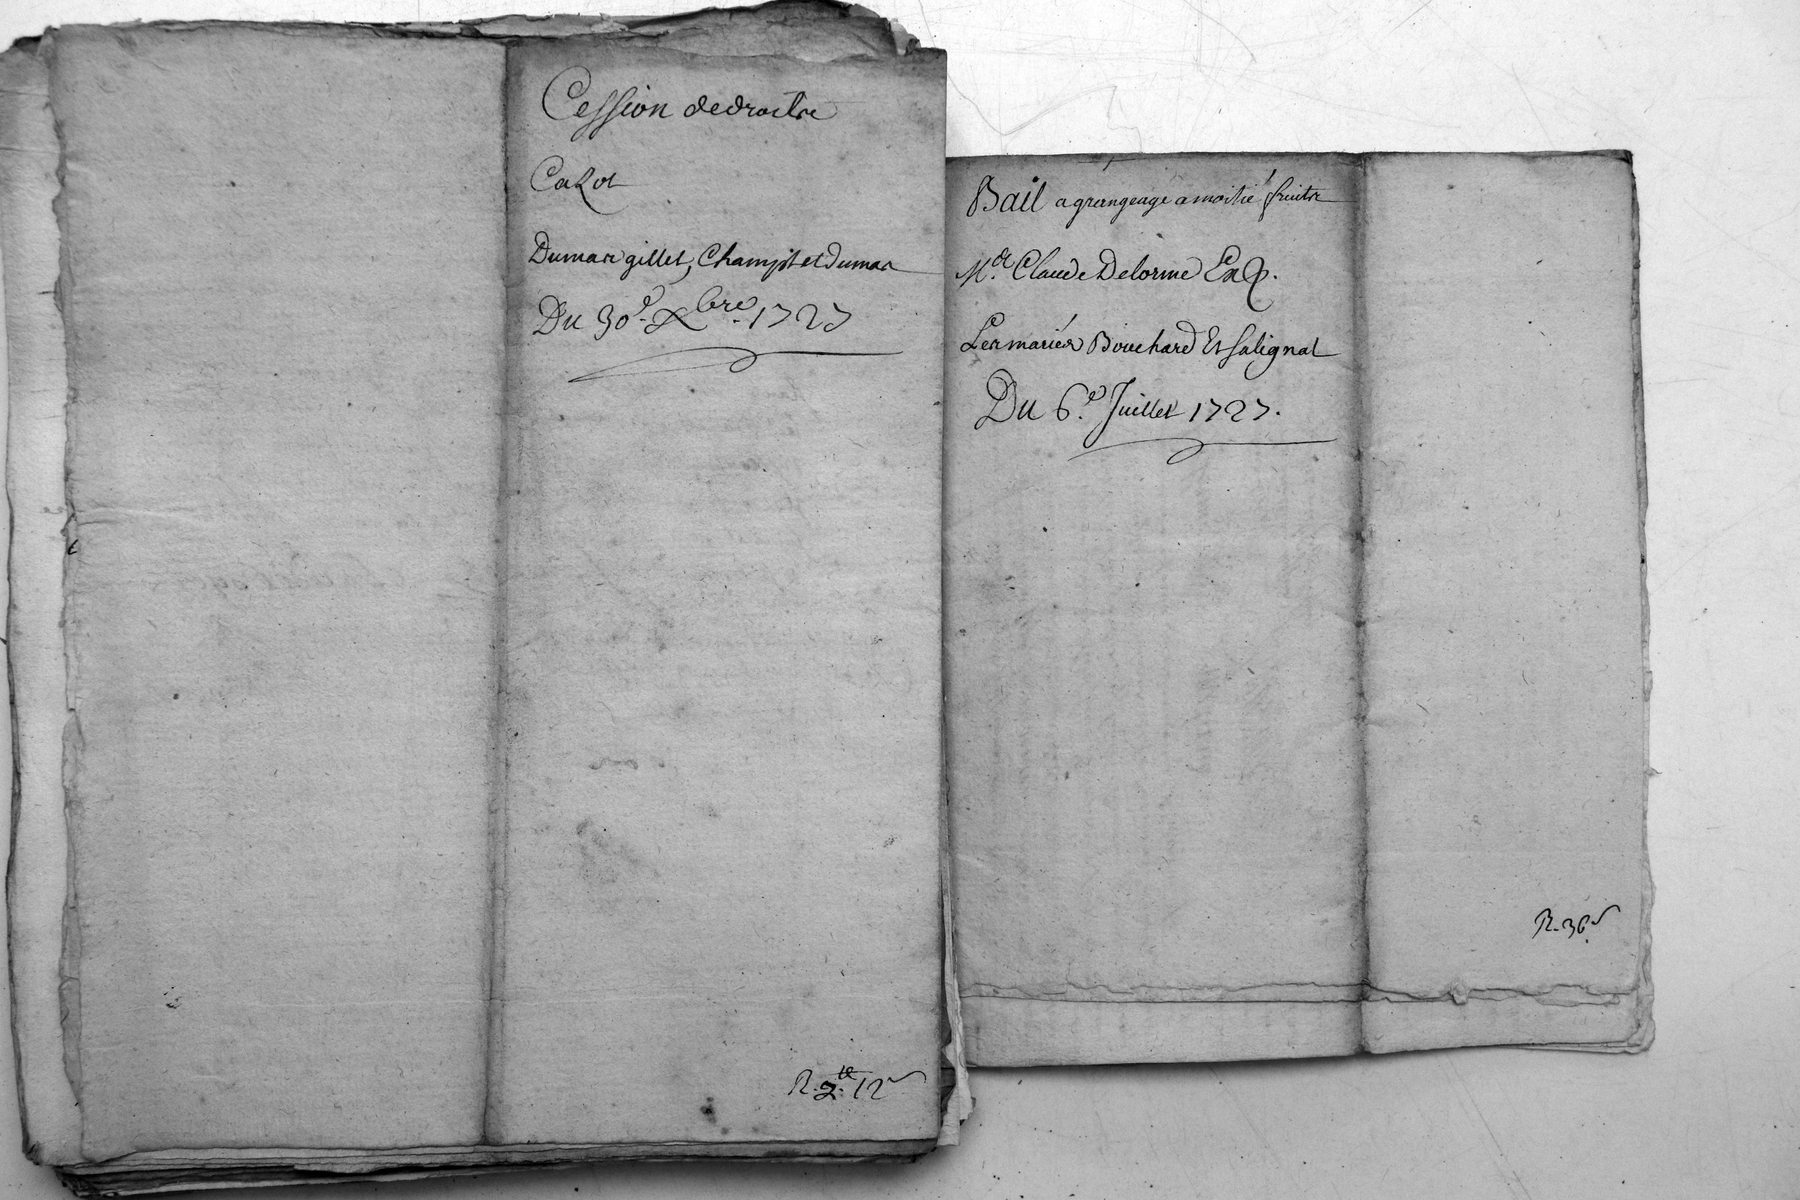 Cession de droits
Cazot
Dumas gillet, Champt et dumas
Du 30e. Xbre. 1727
R. 2tt. 12s
Bail a grangeage a moitié fruits
Mr. Claude Delorme Ex Q.
Les mariés Bouchard Et Salignat
Du 6e. Juillet 1727.
R. 36s